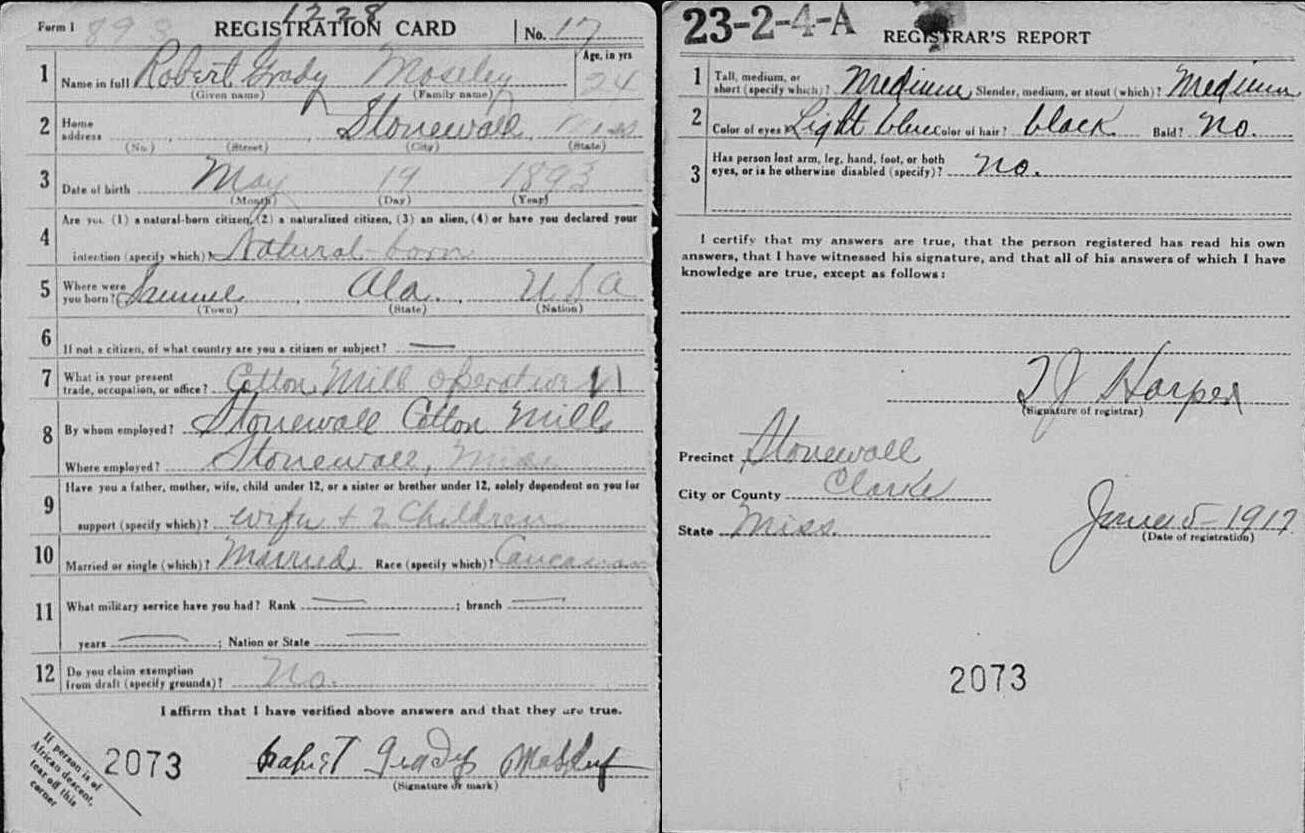 1228
Form 1 893 REGISTRATION CARD No. 17
1 Name in full Robert Grady Moseley Age, in yrs 24
(Given name) (Family name)
2 Home address Stonewall, Miss.
(No.) (Street) (City) (State)
3 Date of birth May 19 1893
(Month) (Day) (Year)
4 Are you (1) a natural-born citizen, (2) a naturalized citizen, (3) an alien, (4) or have you declared your
intention (specify which)? Natural-born
5 Where were you born? , Ala. , U S A
(Town) (State) (Nation)
6 If not a citizen, of what country are you a citizen or subject? —
7 What is your present trade, occupation, or office? Cotton Mill operative 11
8 By whom employed? Stonewall Cotton Mills
Where employed? Stonewall, Miss
9 Have you a father, mother, wife, child under 12, or a sister or brother under 12, solely dependent on you for
support (specify which)? wife + 2 Children
10 Married or single (which)? Married Race (specify which)? Caucasian
11 What military service have you had? Rank — ; branch —
years — ; Nation or State —
12 Do you claim exemption from draft (specify grounds)? No.
I affirm that I have verified above answers and that they are true.
2073 Robert Grady Mosley
(Signature or mark)
If person is of
African descent,
tear off this
corner
23-2-4-A REGISTRAR'S REPORT
1 Tall, medium, or short (specify which)? Medium Slender, medium, or stout (which)? Medium
2 Color of eyes? Light blue Color of hair? black Bald? No.
3 Has person lost arm, leg, hand, foot, or both eyes, or is he otherwise disabled (specify)? No.
I certify that my answers are true, that the person registered has read his own
answers, that I have witnessed his signature, and that all of his answers of which I have
knowledge are true, except as follows:
T J Harper
(Signature of registrar)
Precinct Stonewall
City or County Clarke
State Miss.
June 5-1917
(Date of registration)
2073